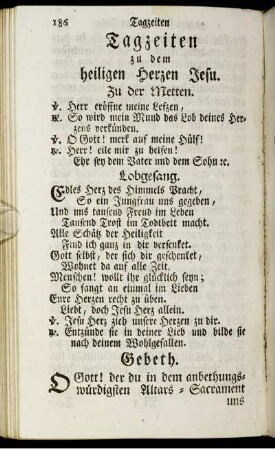 186 Tagzeiten
Tagzeiten
zu dem
heiligen Herzen Jesu.
Zu der Metten.
℣. Herr eröffne meine Lefzen,
℟. So wird mein Mund das Lob deines Her-
zens verkünden.
℣. O Gott! merk auf meine Hülf!
℟. Herr! eile mir zu helfen!
Ehr sey dem Vater und dem Sohn ꝛc.
Lobgesang.
Edles Herz des Himmels Pracht,
So ein Jungfrau uns gegeben,
Und uns tausend Freud im Leben
Tausend Trost im Todbett macht.
Alle Schätz der Heiligkeit
Find ich ganz in dir versenket.
Gott selbst, der sich dir geschenket,
Wohnet da auf alle Zeit.
Menschen! wollt ihr glücklich seyn;
So fangt an einmal im Lieben
Eure Herzen recht zu üben.
Liebt, doch Jesu Herz allein.
℣. Jesu Herz zieh unsere Herzen zu dir.
℟. Entzünde sie in deiner Lieb und bilde sie
nach deinem Wohlgefallen.
Gebeth.
O Gott! der du in dem anbethungs-
würdigsten Altars-Sacrament
uns